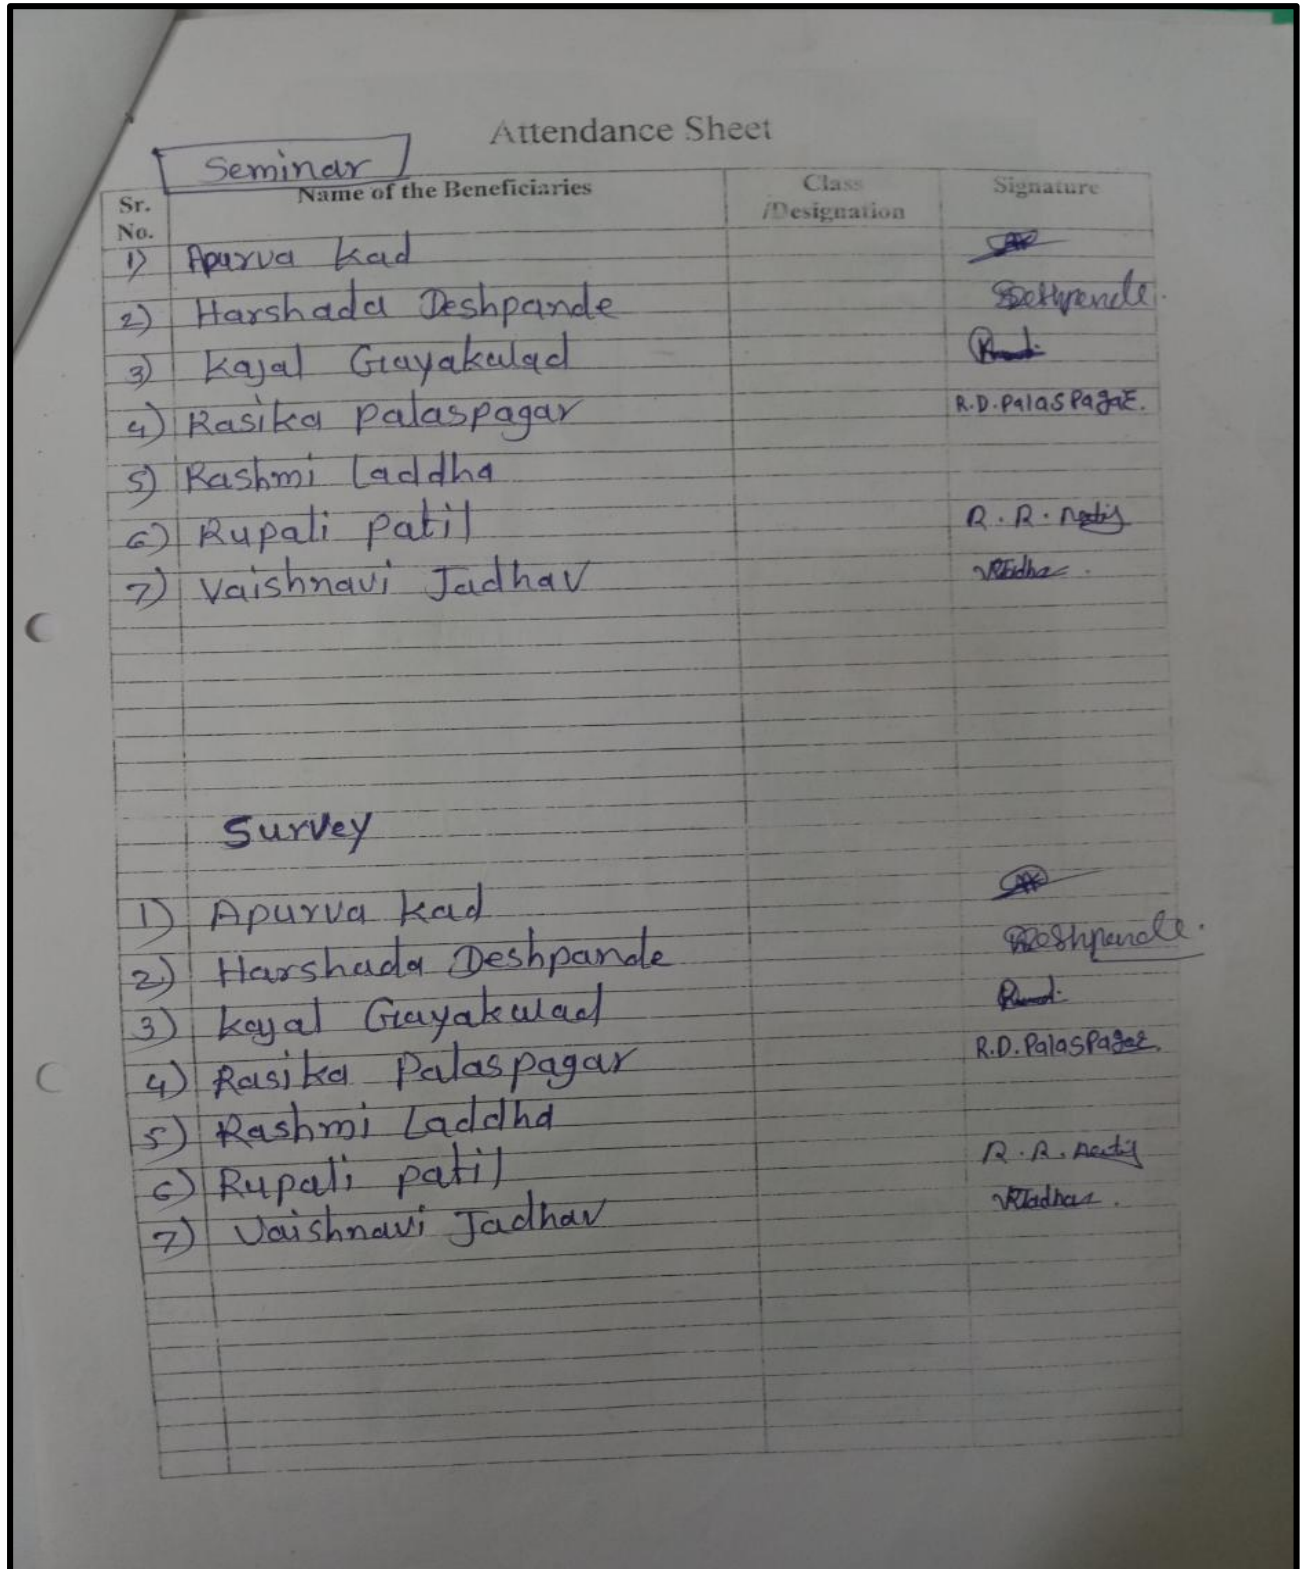 Attendance Sheet
Seminar
Sr. No. Name of the Beneficiaries Class /Designation Signature
1) Apurva Kad
2) Harshada Deshpande Deshpande.
3) Kajal Gayakwad
4) Rasika Palaspagar R.D.Palaspagar.
5) Rashmi Laddha
6) Rupali Patil R.R.Patil
7) Vaishnavi Jadhav VRJadhav.
Survey
1) Apurva Kad
2) Harshada Deshpande Deshpande.
3) Kajal Gayakwad
4) Rasika Palaspagar R.D.Palaspagar.
5) Rashmi Laddha
6) Rupali Patil R.R.Patil
7) Vaishnavi Jadhav VRJadhav.